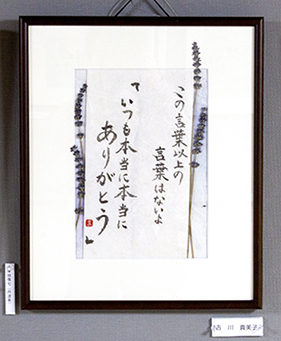 この言葉以上の
言葉はないよ
『いつも本当に本当に
ありがとう』
古川 真美子